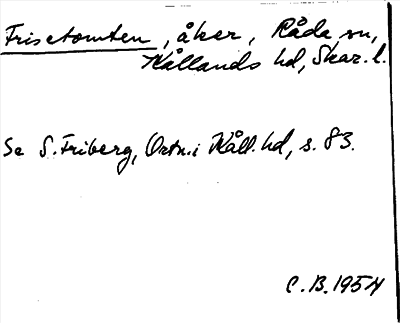 Frisetomten, åker, Råda sn,
Kållands hd, Skar. l.
Se S. Friberg, Ortn. i Kåll. hd, s. 83.
C. B. 1954